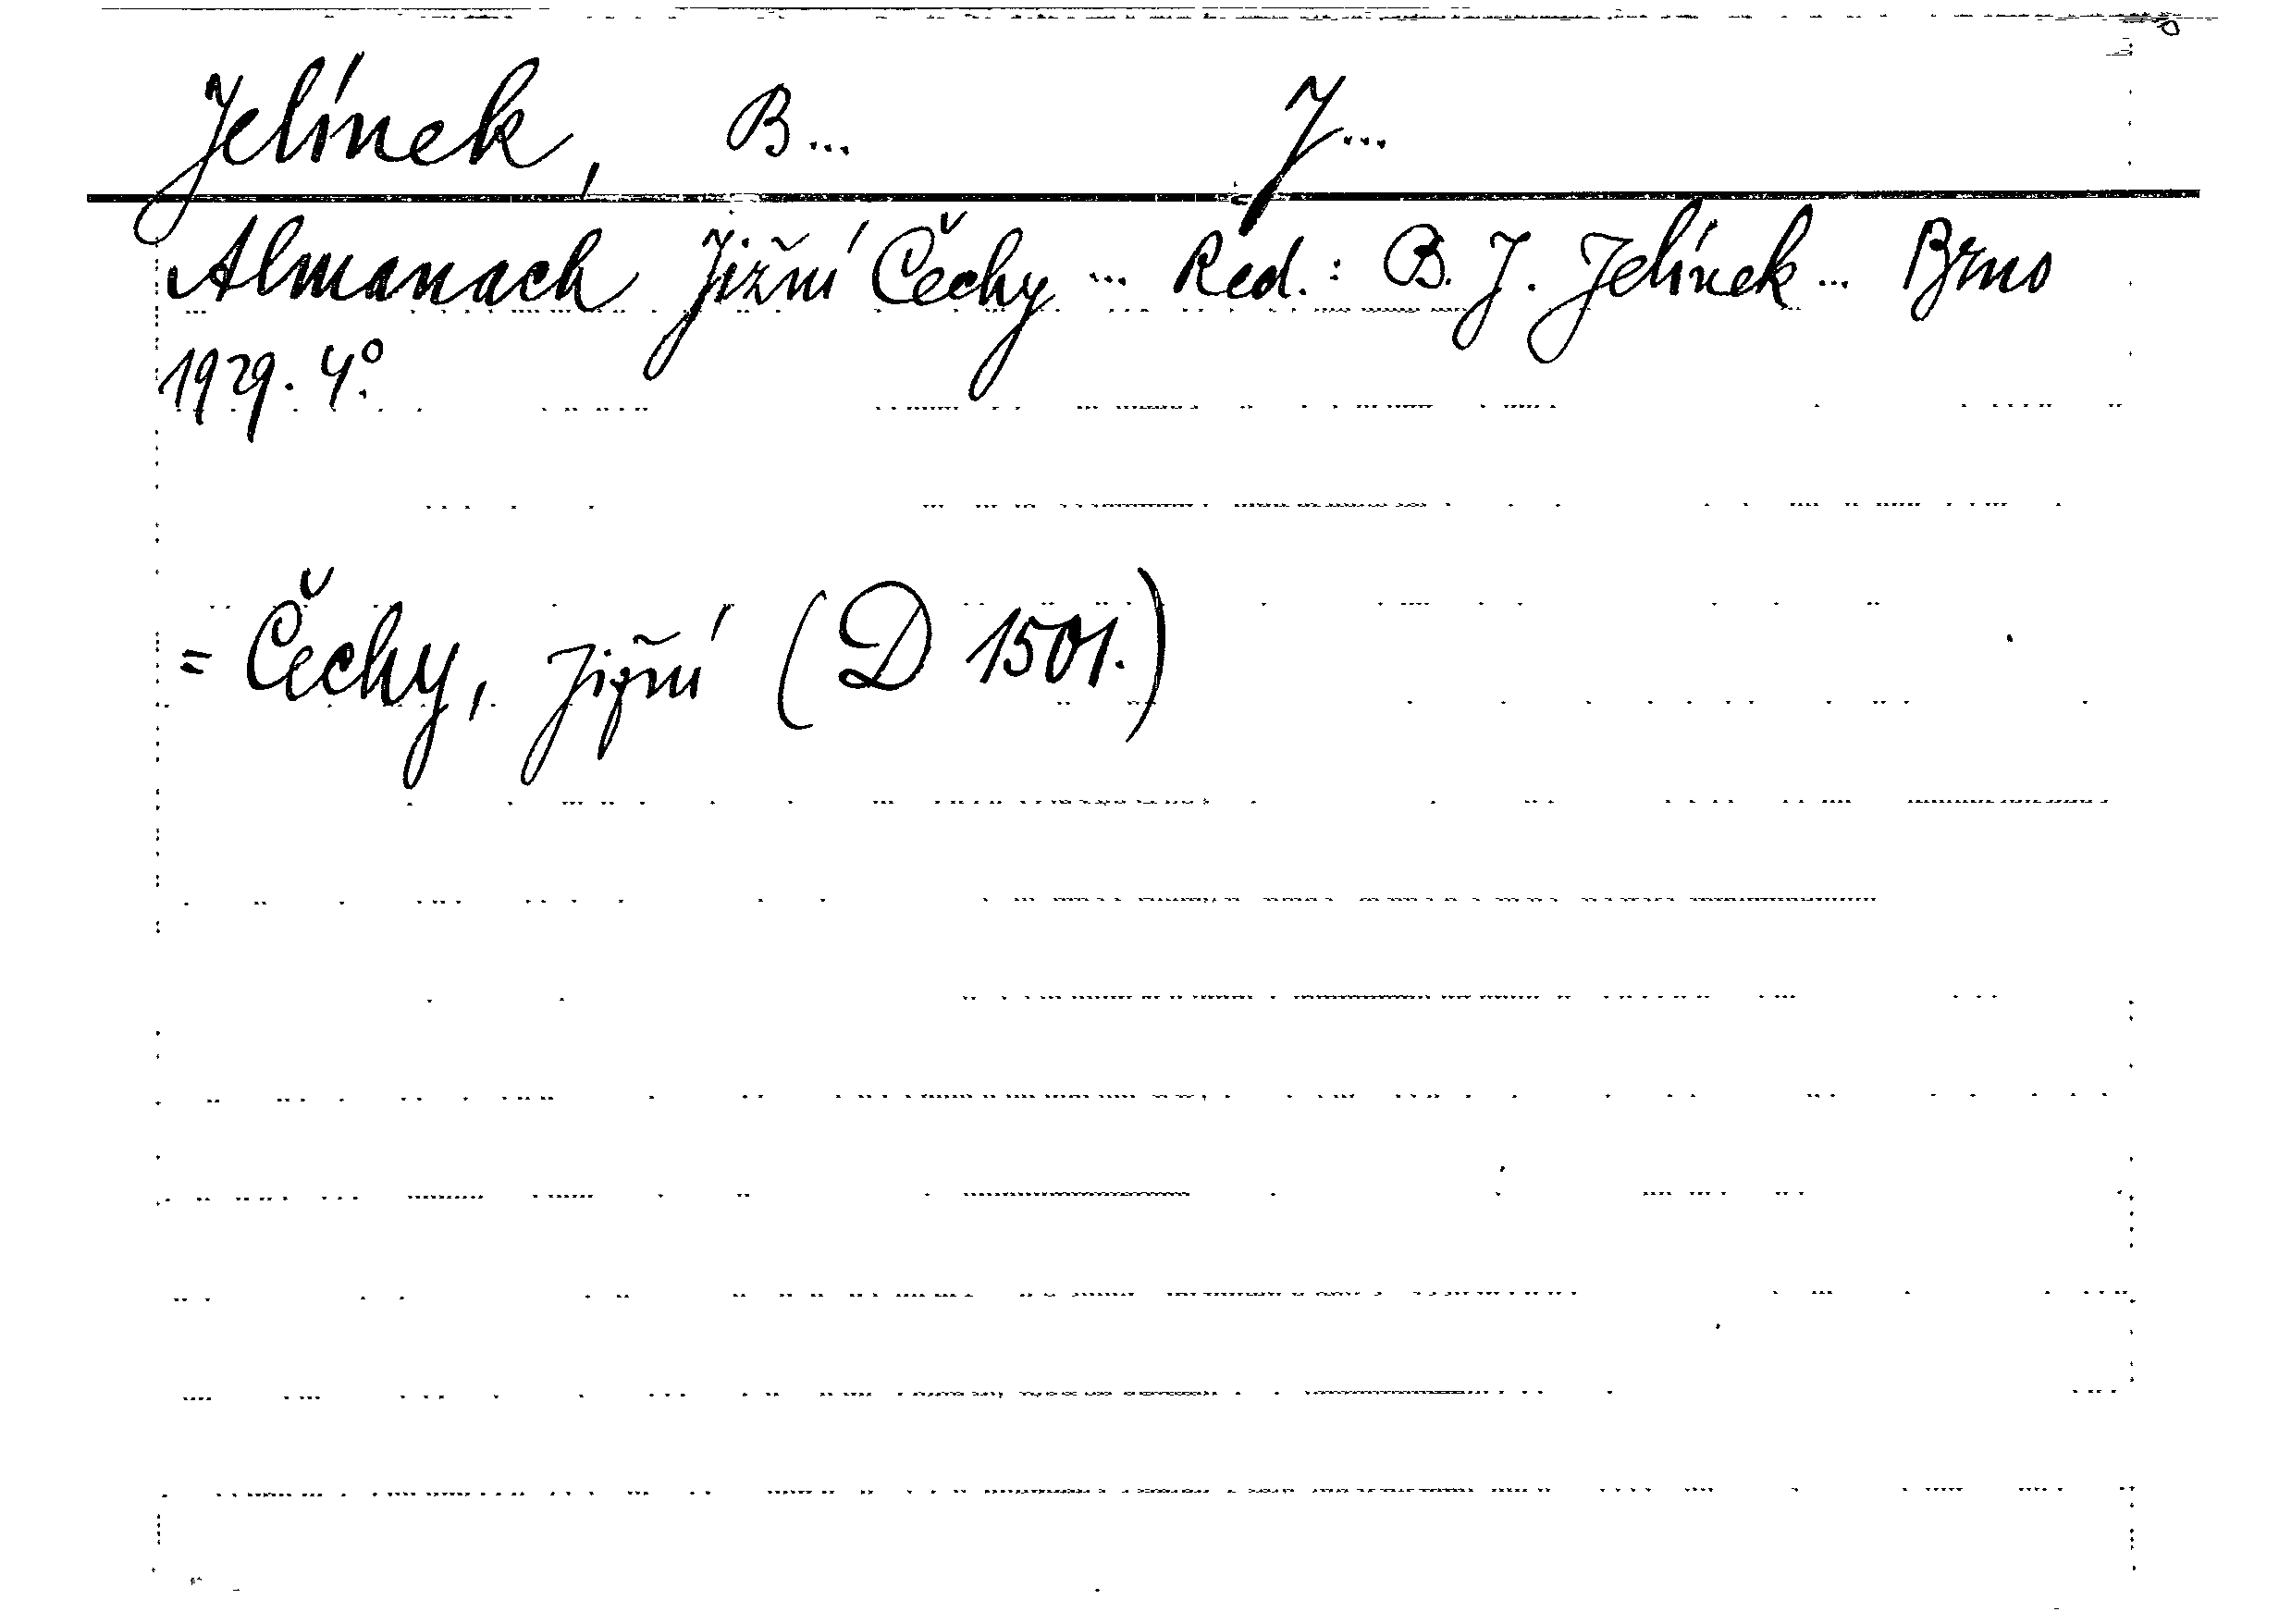 Jelínek, B... J...
Almanach Jižní Čechy ... Red.: B. J. Jelínek ... Brno
1929. 4°.
= Čechy, jižní (D 1501.)